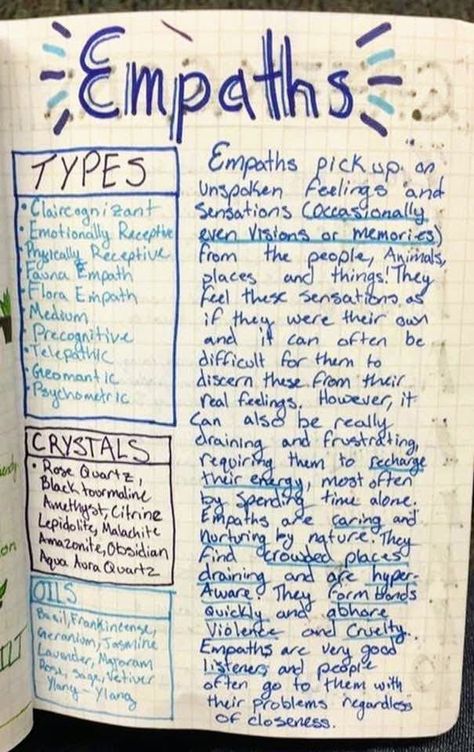 Empaths
TYPES
• Claircognizant
• Emotionally Receptive
• Physically Receptive
• Fauna Empath
• Flora Empath
• Medium
• Precognitive
• Telepathic
• Geomantic
• Psychometric
CRYSTALS
• Rose Quartz,
Black tourmaline
Amethyst, Citrine
Lepidolite, Malachite
Amazonite, Obsidian
Aqua Aura Quartz
OILS
Basil, Frankincense,
Geranium, Jasmine
Lavender, Majoram
Rose, Sage, Vetiver
Ylang-Ylang
Empaths pick up on
unspoken feelings and
sensations (occasionally
even visions or memories)
from the people, Animals,
places and things! They
feel these sensations as
if they were their own
and it can often be
difficult for them to
discern these from their
real feelings. However, it
can also be really
draining and frustrating,
requiring them to recharge
their energy, most often
by spending time alone.
Empaths are caring and
nurturing by nature. They
find crowded places
draining and are hyper-
Aware. They form bonds
quickly and abhore
violence and cruelty.
Empaths are very good
listeners, and people
often go to them with
their problems regardless
of closeness.